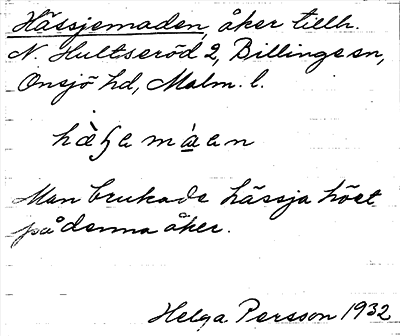 Hässjemaden, åker tillh.
N. Hultseröd 2, Billinge sn,
Onsjö hd, Malm. l.
Man brukade hässja höet
på denna åker.
Helga Persson 1932